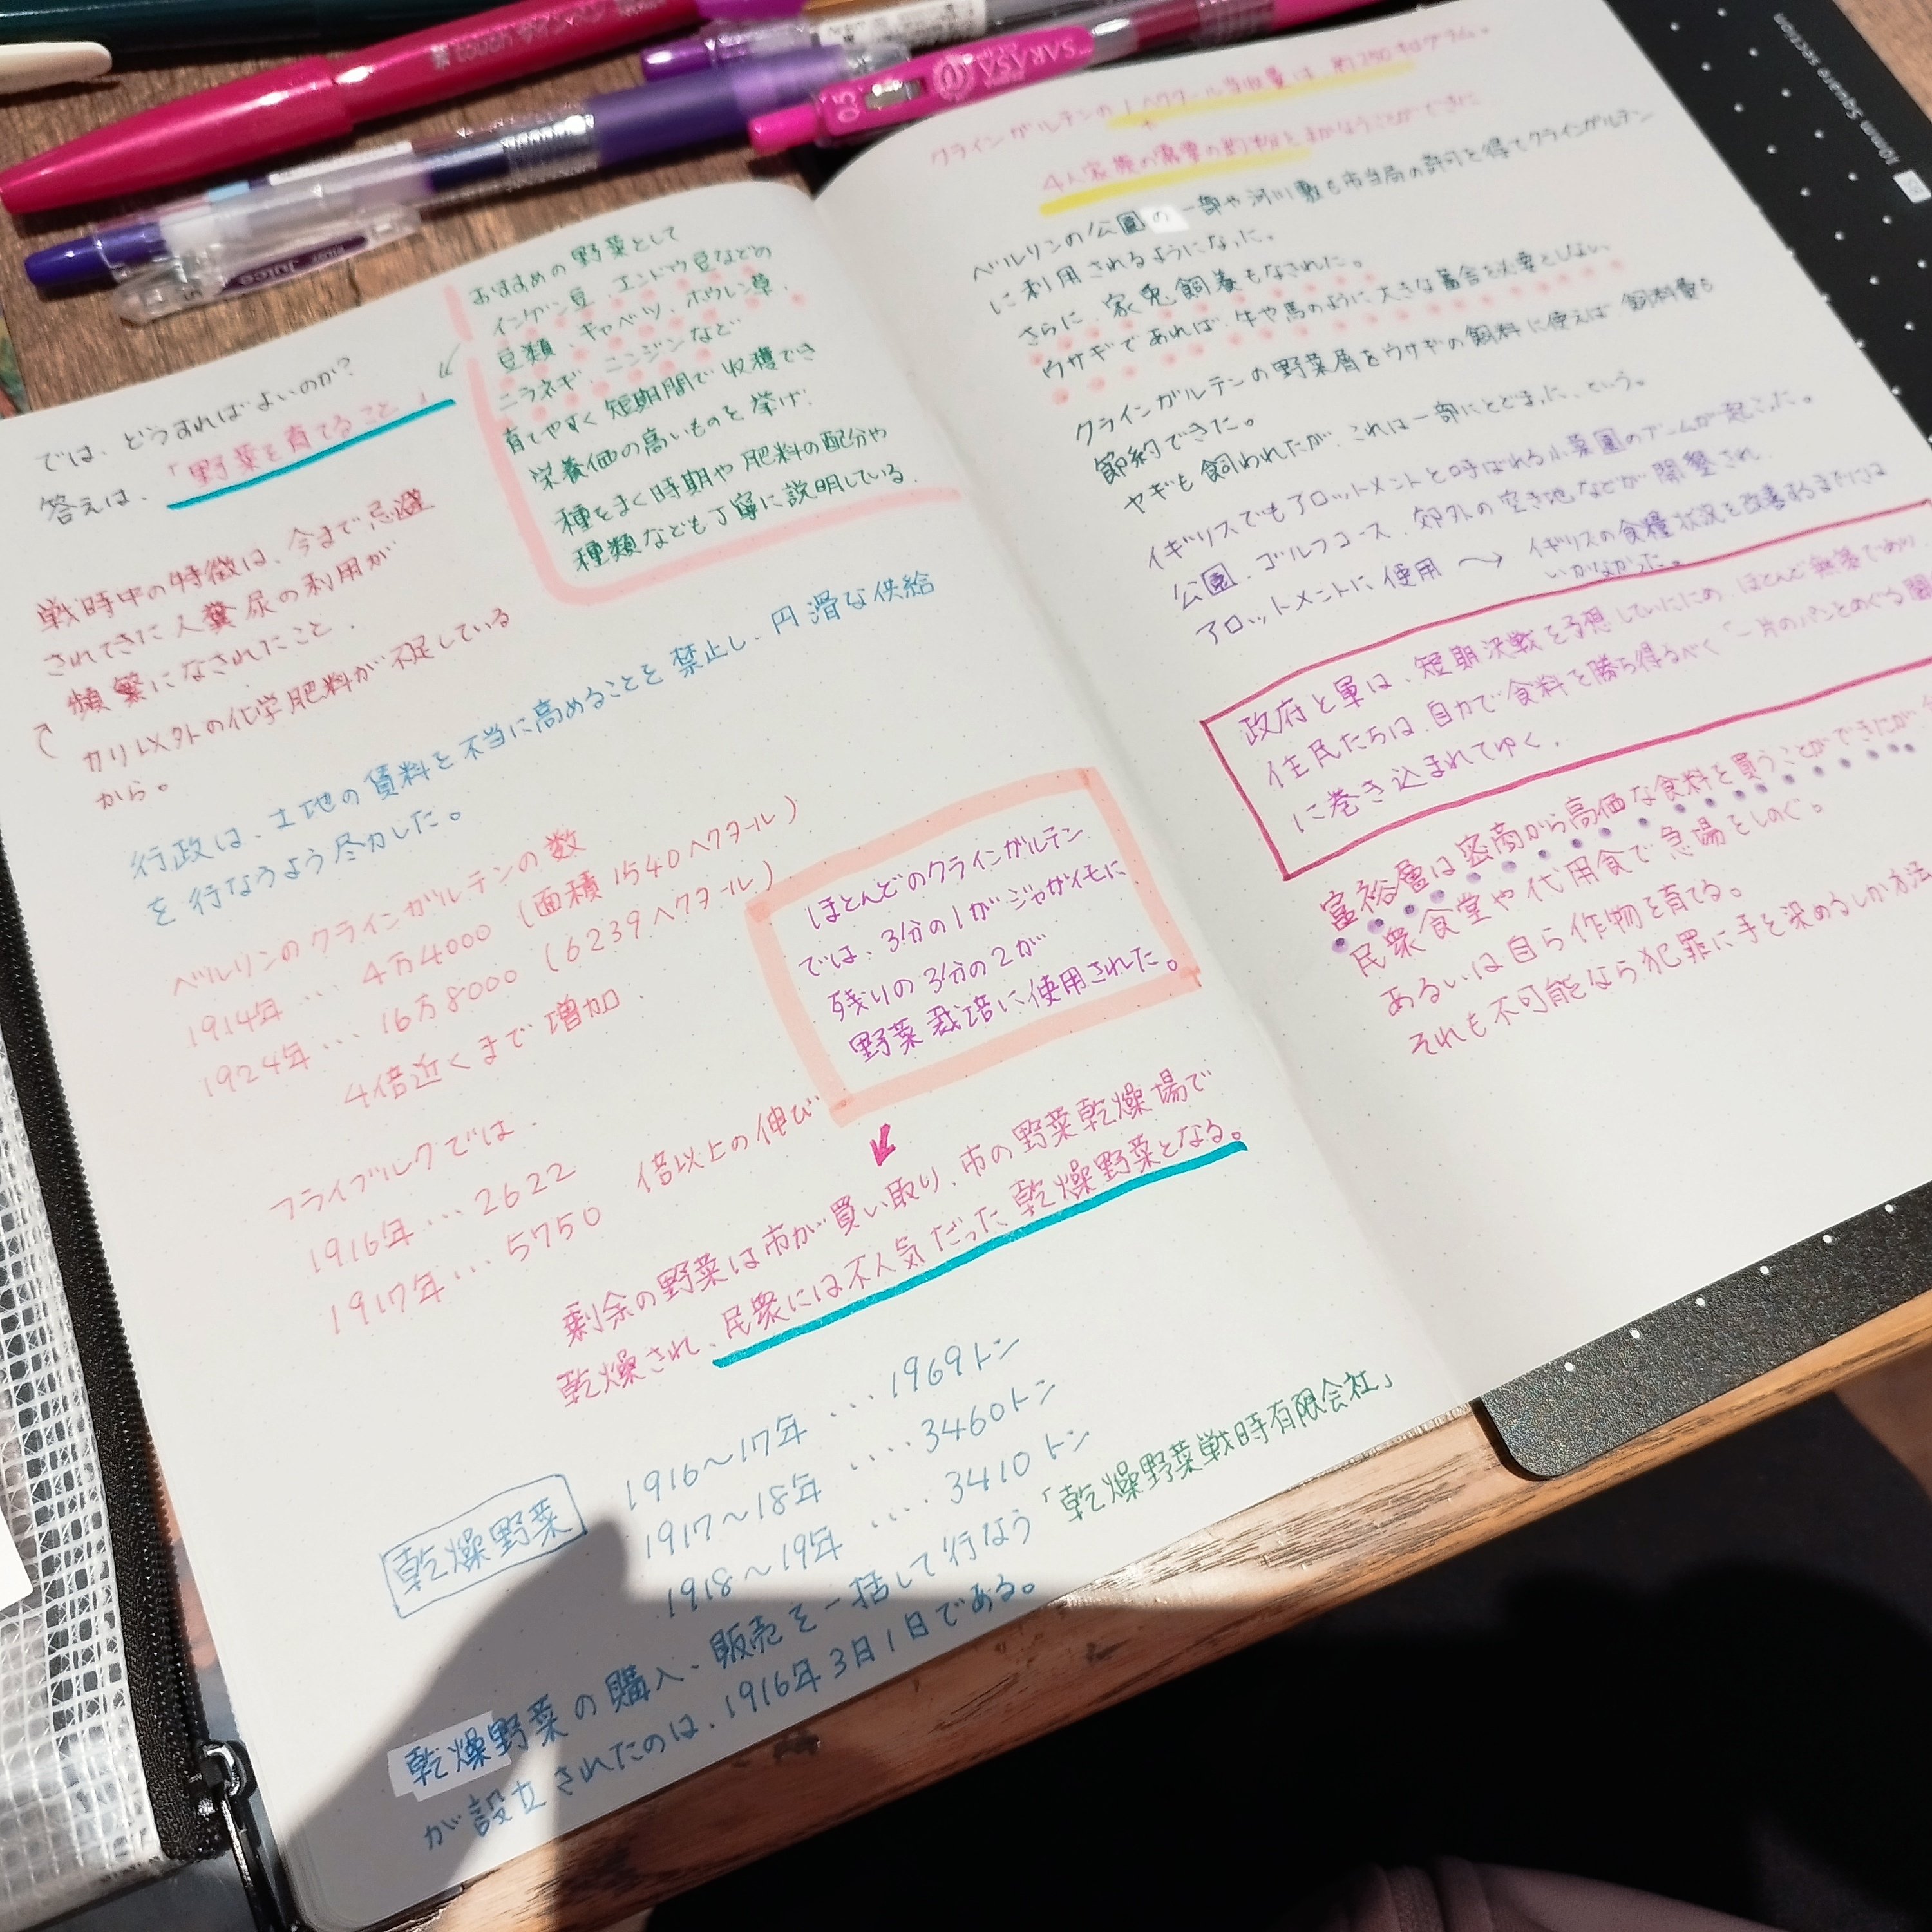 では、どうすればよいのか?
答えは、「野菜を育てること」
おすすめの野菜として
インゲン豆、エンドウ豆などの
豆類、キャベツ、ホウレン草、
ニラネギ、ニンジンなど
育てやすく短期間で収穫でき
栄養価の高いものを挙げ、
種をまく時期や肥料の配分や
種類なども丁寧に説明している.
戦時中の特徴は、今まで忌避
されてきた人糞尿の利用が
頻繁になされたこと.
カリ以外の化学肥料が不足している
から。
行政は、土地の賃料を不当に高めることを禁止し、円滑な供給
を行なうよう尽力した。
ベルリンのクラインガルテンの数
1914年 … 4万4000 (面積1540ヘクタール)
1924年 … 16万8000 (6239ヘクタール)
4倍近くまで増加.
フライブルクでは.
1916年 … 2622
1917年 … 5750 倍以上の伸び
ほとんどのクラインガルテン
では、3分の1がジャガイモに
残りの3分の2が
野菜栽培に使用された。
剰余の野菜は市が買い取り、市の野菜乾燥場で
乾燥され、民衆には不人気だった乾燥野菜となる。
乾燥野菜
1916〜17年 … 1969トン
1917〜18年 …. 3460トン
1918〜19年 …. 3410トン
乾燥野菜の購入、販売を一括して行なう「乾燥野菜戦時有限会社」
が設立されたのは、1916年3月1日である。
クラインガルテンの1ヘクタール当収量は、約250キログラム。
4人家族の需要の約
まかなうことができた
ベルリンの公園の一部や河川敷も市当局の許可を得てクラインガルテン
に利用されるようになった。
さらに、家兎飼養もなされた。
ウサギであれば、牛や馬のように大きな畜舎を必要としない
クラインガルテンの野菜屑をウサギの飼料に使えば、飼料費も
節約できた。
ヤギも飼われたが、これは一部にとどまった、という。
イギリスでもアロットメントと呼ばれる小菜園のブームが起こった。
公園、ゴルフコース、郊外の空き地などが開墾され
アロットメントに使用 → イギリスの食糧状況を改善するまでには
いかなかった。
政府と軍は、短期決戦を予想していたため、ほとんど無策であり
住民たちは、自力で食料を勝ち得るべく「一片のパンをめぐる闘
に巻き込まれてゆく.
富裕層は密商から高価な食料を買うことができたが
民衆食堂や代用食で急場をしのぐ。
あるいは自ら作物を育てる。
それも不可能なら犯罪に手を染めるしか方法
SARASA
0.5
Juice
10mm Square section